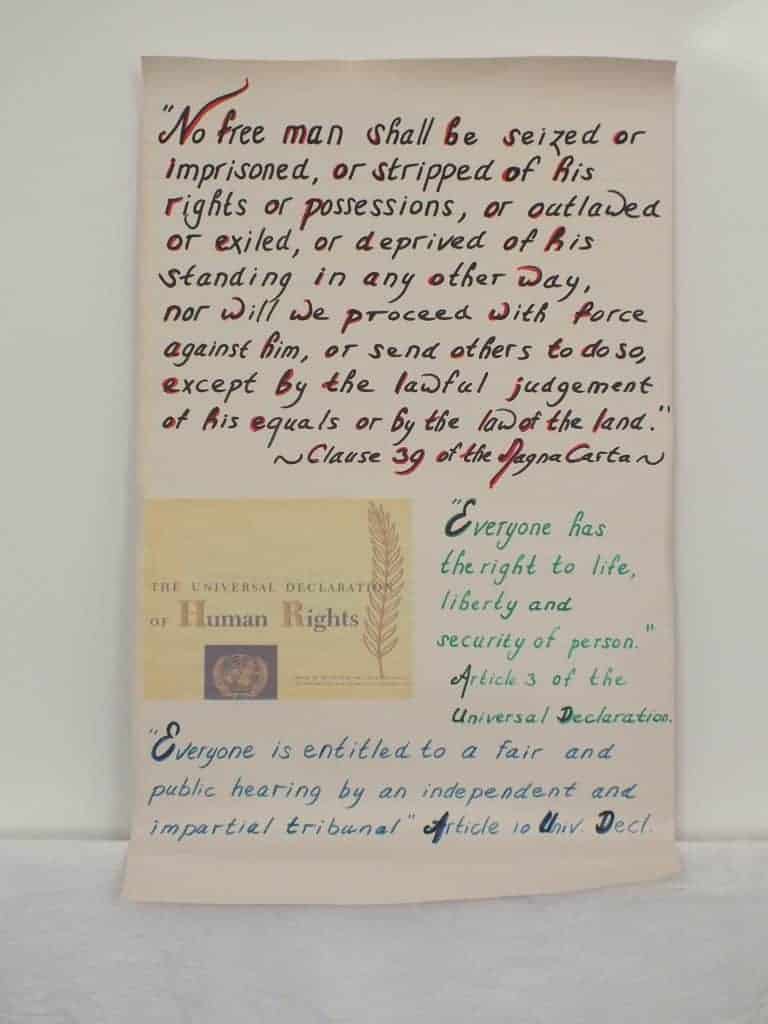 "No free man shall be seized or
imprisoned, or stripped of his
rights or possessions, or outlawed
or exiled, or deprived of his
standing in any other way,
nor will we proceed with force
against him, or send others to do so,
except by the lawful judgement
of his equals or by the law of the land."
~Clause 39 of the Magna Carta~
THE UNIVERSAL DECLARATION
OF Human Rights
"Everyone has
the right to life,
liberty and
security of person."
Article 3 of the
Universal Declaration.
"Everyone is entitled to a fair and
public hearing by an independent and
impartial tribunal" Article 10 Univ. Decl.